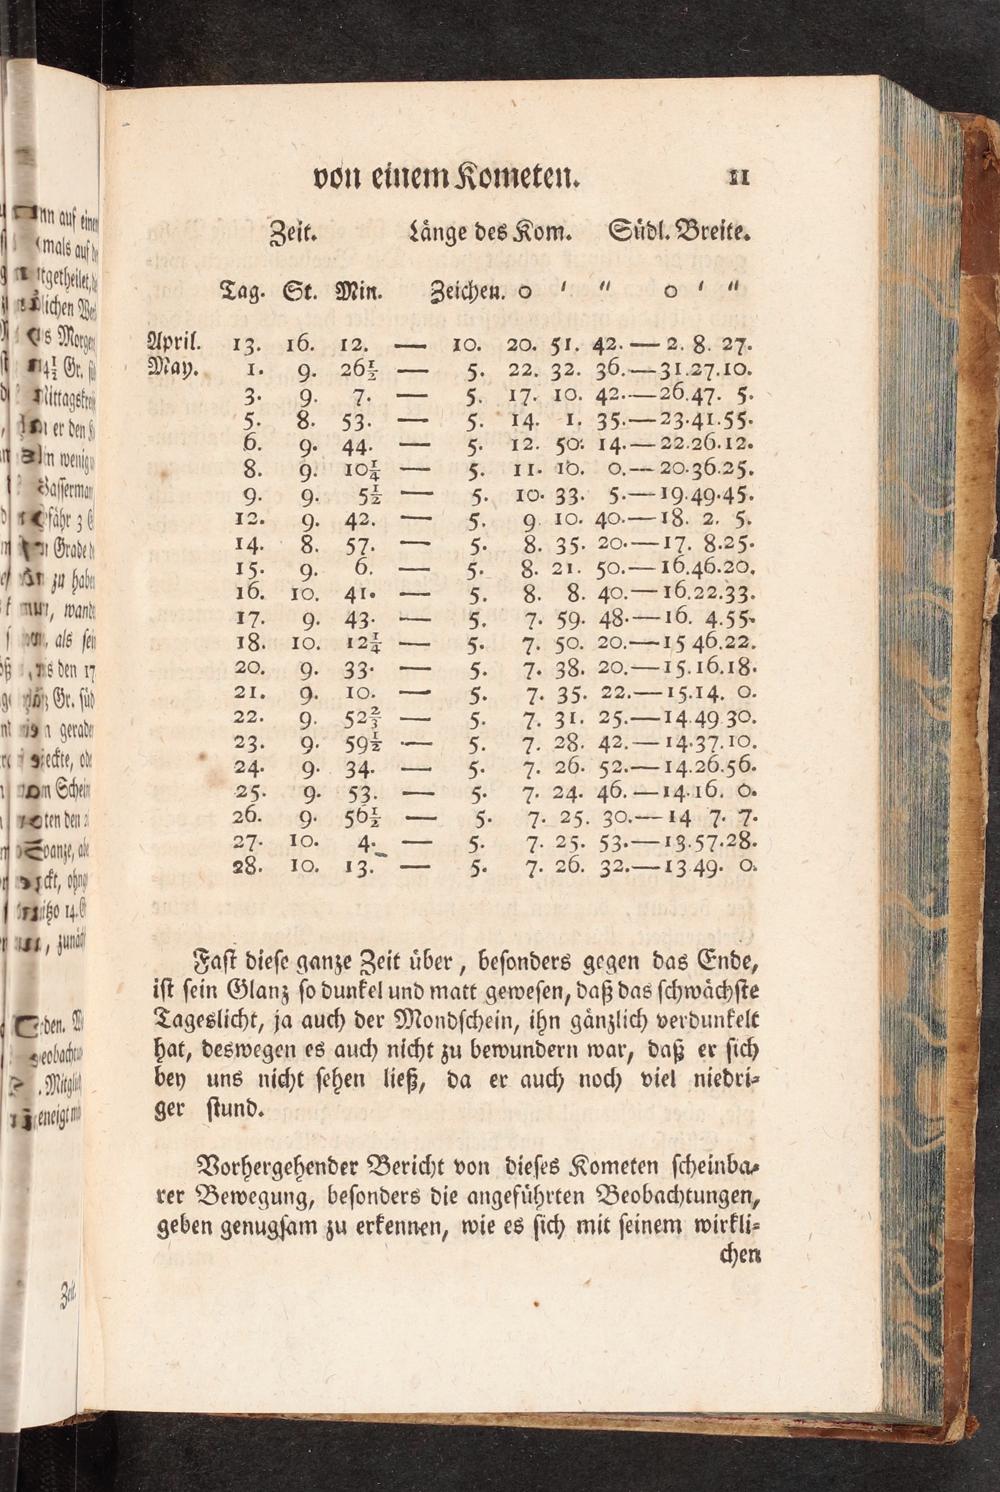 nn auf einen
mals auf
tgetheilet,
lichen
s Morgen
14½ Gr.
Mittagskrei
er den
n wenig
Wasserman
fähr 3
Grade
zu habe
nun, wand
als sei
s den 17
Gr. süd
gerade
eckte, od
m Schein
ten den
ckt, ohn
itzo 14.
zunä
den.
eobacht
Mitgli
eneigt
Zeit.
von einem Kometen. 11
Zeit. Länge des Kom. Südl. Breite.
Tag. St. Min. Zeichen. o ′ ″ o ′ ″
April. 13. 16. 12. — 10. 20. 51. 42. — 2. 8. 27.
May. 1. 9. 26½ — 5. 22. 32. 36. — 31.27.10.
3. 9. 7. — 5. 17. 10. 42. — 26.47. 5.
5. 8. 53. — 5. 14. 1. 35. — 23.41.55.
6. 9. 44. — 5. 12. 50. 14. — 22.26.12.
8. 9. 10¼ — 5. 11. 10. 0. — 20.36.25.
9. 9. 5½ — 5. 10. 33. 5. — 19.49.45.
12. 9. 42. — 5. 9 10. 40. — 18. 2. 5.
14. 8. 57. — 5. 8. 35. 20. — 17. 8.25.
15. 9. 6. — 5. 8. 21. 50. — 16.46.20.
16. 10. 41. — 5. 8. 8. 40. — 16.22.33.
17. 9. 43. — 5. 7. 59. 48. — 16. 4.55.
18. 10. 12¼ — 5. 7. 50. 20. — 15 46.22.
20. 9. 33. — 5. 7. 38. 20. — 15.16.18.
21. 9. 10. — 5. 7. 35. 22. — 15.14. 0.
22. 9. 52⅔ — 5. 7. 31. 25. — 14.49 30.
23. 9. 59½ — 5. 7. 28. 42. — 14.37.10.
24. 9. 34. — 5. 7. 26. 52. — 14.26.56.
25. 9. 53. — 5. 7. 24. 46. — 14.16. 0.
26. 9. 56½ — 5. 7. 25. 30. — 14 7. 7.
27. 10. 4. — 5. 7. 25. 53. — 13.57.28.
28. 10. 13. — 5. 7. 26. 32. — 13 49. 0.
Fast diese ganze Zeit über, besonders gegen das Ende,
ist sein Glanz so dunkel und matt gewesen, daß das schwächste
Tageslicht, ja auch der Mondschein, ihn gänzlich verdunkelt
hat, deswegen es auch nicht zu bewundern war, daß er sich
bey uns nicht sehen ließ, da er auch noch viel niedri-
ger stund.
Vorhergehender Bericht von dieses Kometen scheinba-
rer Bewegung, besonders die angeführten Beobachtungen,
geben genugsam zu erkennen, wie es sich mit seinem wirkli-
chen